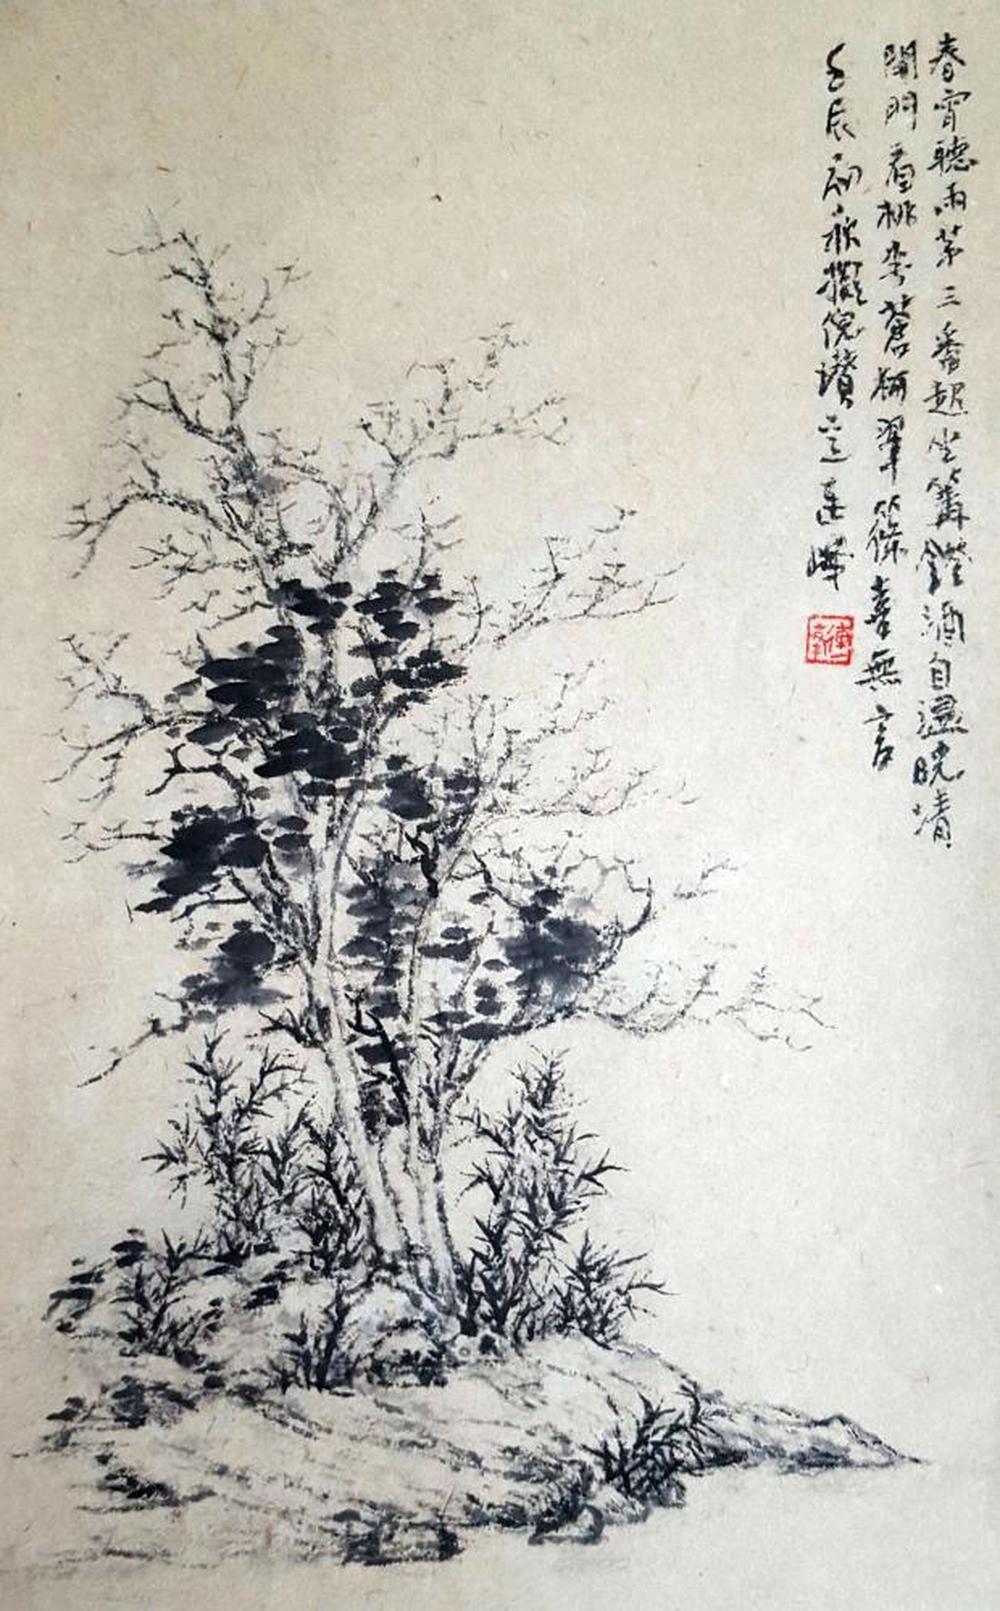 春宵聽雨第三番起坐篝鐙酒自溫曉清
開門看桃李蒼梧翠篠喜無言
壬辰初秋擬倪瓚 連峰